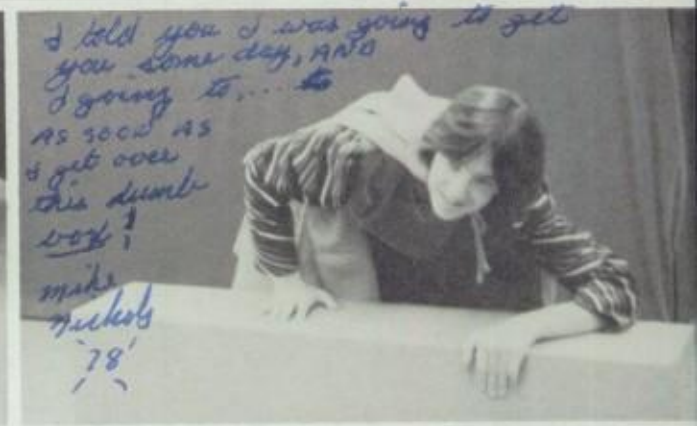 I told you I was going to get
you some day, AND
I going to,... to
AS SOON AS
I get over
this dumb
box!
Mike
Nichols
'78'